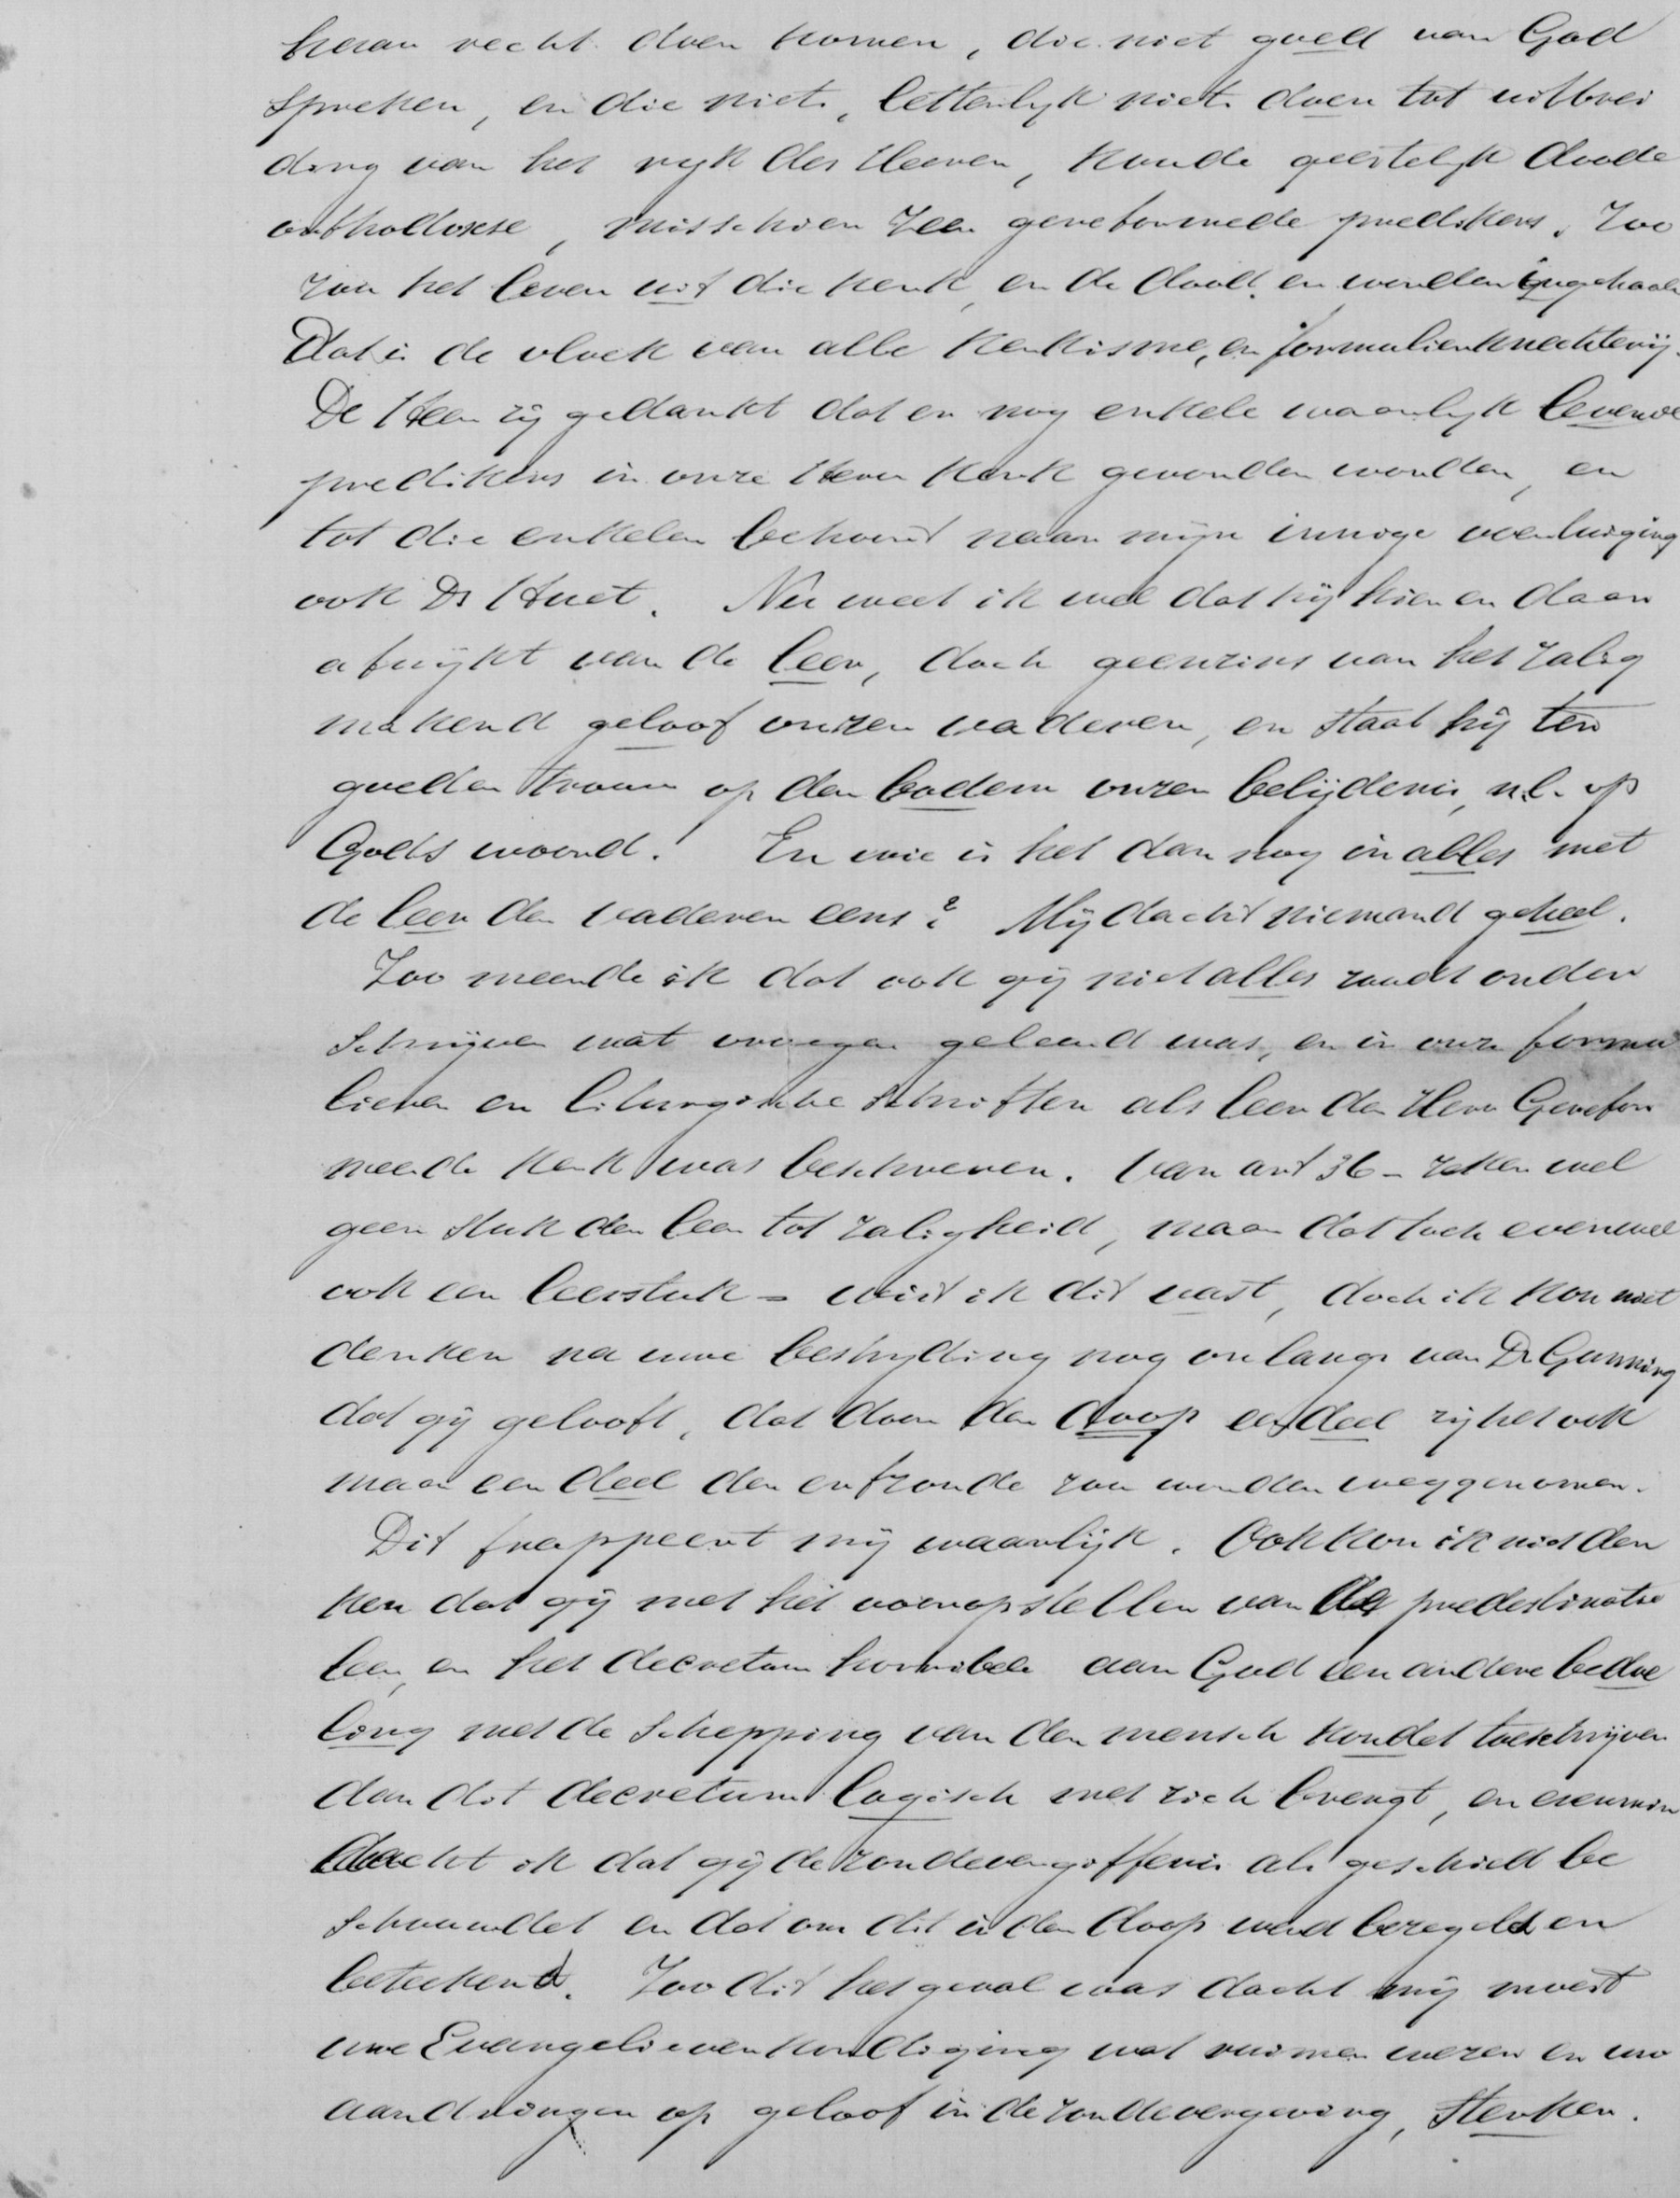 haar recht doen komen, die niet goed van God
spreken, en die niets, letterlyk niets doen tot uitbrei
ding van het ryk des Heeren, koude geestelyk doode
orthodoxe, misschien zeer gereformeede predikers. Zoo
zou het leven uit die kerk, en de dood er worden ingehaald
Dat is de vloek van alle kerkisme, en formulierknechterij.
De Heer zij gedankt dat er nog enkele waarlyk levende
predikers in onze Herv Kerk gevonden worden, en
tot die enkelen behoort naar mijn innige overtuiging
ook Ds Huet. Nu weet ik wel dat hij hier en daar
afwijkt van de leer, doch geenzins van het zalig
makend geloof onzer vaderen, en staat hij ten
goeden trouw op den bodem onzer belijdenis, n.l. op
Gods woord! En wie is het dan nog in alles met
de leer der vaderen eens? Mij dacht niemand geheel.
Zoo meende ik dat ook gij niet alles zoudt onder
schrijven wat vroeger geleerd was, en in onze formu
lieren en liturgische schriften als leer der Herv Gerefor
meerde Kerk was beschreven. Van art 36 - zeker wel
geen stuk der leer tot zaligheid, maar dat toch evenwel
ook een leerstuk - wist ik dit vast, doch ik kon niet
denken na uwe bestryding nog onlangs van Dr Gunning
dat gij gelooft, dat door den doop een deel zij het ook
maar een deel der erfzonde zou worden weggenomen.
Dit frappeert mij waarlijk. Ook kon ik niet den
ken dat gij met het voorop stellen van de predestinatie
leer, en het decretum horribele aan God een andere bedoe
ling met de schepping van den mensch kondet toeschrijven
dan dat decretum logisch met zich brengt, en evenmin
dacht ik dat gij de zondevergiffenis als geschied be
schouwdet en dat om dit in den doop werd bezegeld en
beteekend. Zoo dit het geval was dacht mij moest
uwe Evangelieverkondiging wat ruimer wezen en uw
aandringen op geloof in de zondevergeving, sterker.